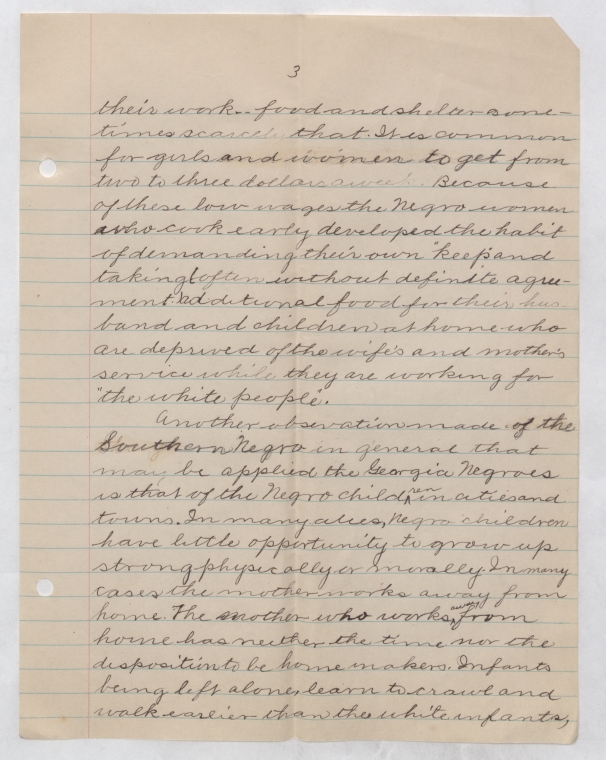 3
their work-- food and shelter some-
times scarcely that. It is common
for girls and women to get from
two to three dollars a week. Because
of these low wages the Negro women
who cook early developed the habit
of demanding their own "keep and
taking (often without definite agree-
ment additional food for their hus-
band and children at home who
are deprived of the wife's and mother's
service while they are working for
"the white people".
Another obsevation made of the
Southern Negro in general that
may be applied the Georgia Negroes
is that of the Negro children in cities and
towns. In many cities, Negro children
have little opportunity to grow up
strong physically or morally. In many
cases the mother works away from
home. The mother who works away from
home has neither the time nor the
disposition to be home makers. Infants
being left alone, learn to crawl and
walk earlier than the white infants,